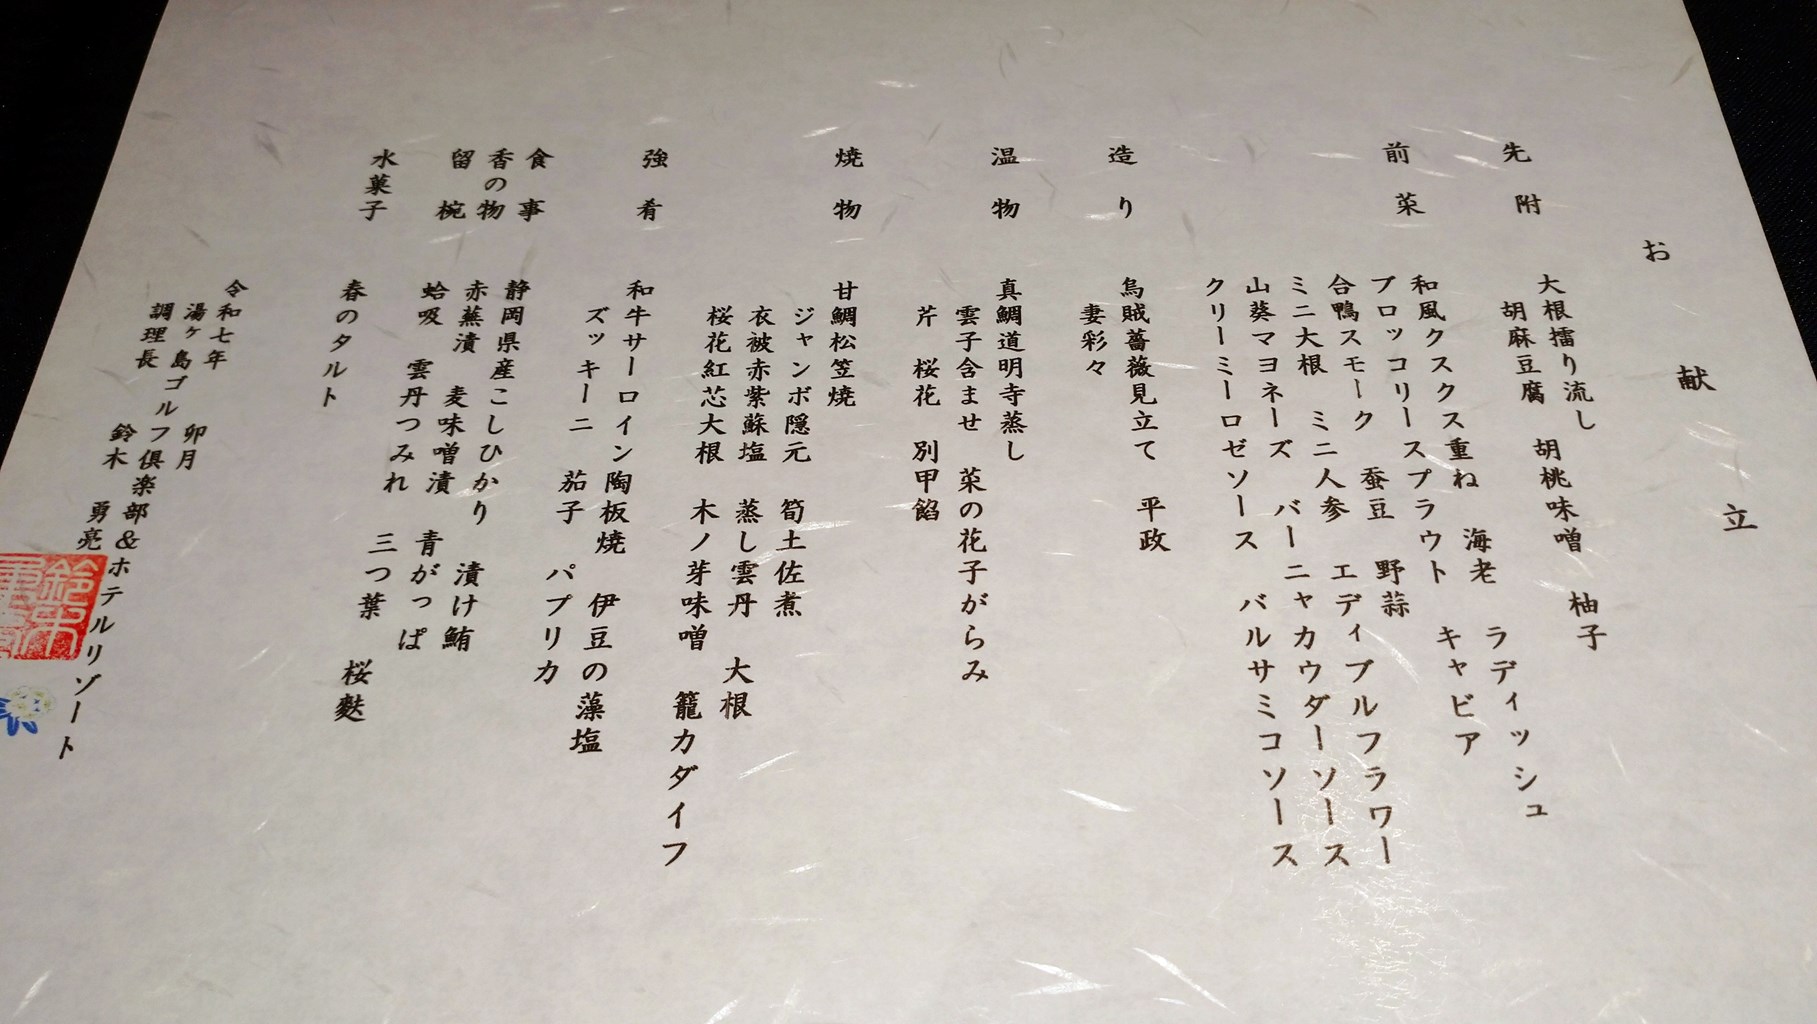 お献立
先附 大根擂り流し 胡桃味噌 柚子
胡麻豆腐
前菜 和風クスクス重ね 海老 ラディッシュ
ブロッコリースプラウト キャビア
合鴨スモーク 蚕豆 野蒜
ミニ大根 ミニ人参 エディブルフラワー
山葵マヨネーズ バーニャカウダーソース
クリーミーロゼソース バルサミコソース
造り 烏賊薔薇見立て 平政
妻彩々
温物 真鯛道明寺蒸し
雲子含ませ 菜の花子がらみ
芹 桜花 別甲餡
焼物 甘鯛松笠焼
ジャンボ隠元 筍土佐煮
衣被赤紫蘇塩 蒸し雲丹 大根
桜花紅芯大根 木ノ芽味噌 籠カダイフ
強肴 和牛サーロイン陶板焼 伊豆の藻塩
ズッキーニ 茄子 パプリカ
食事 静岡県産こしひかり
香の物 赤蕪漬 麦味噌漬 青がっぱ 漬け鮪
留椀 蛤吸 雲丹つみれ 三つ葉 桜麩
水菓子 春のタルト
令和七年 卯月
湯ヶ島ゴルフ倶楽部&ホテルリゾート
調理長 鈴木 勇亮